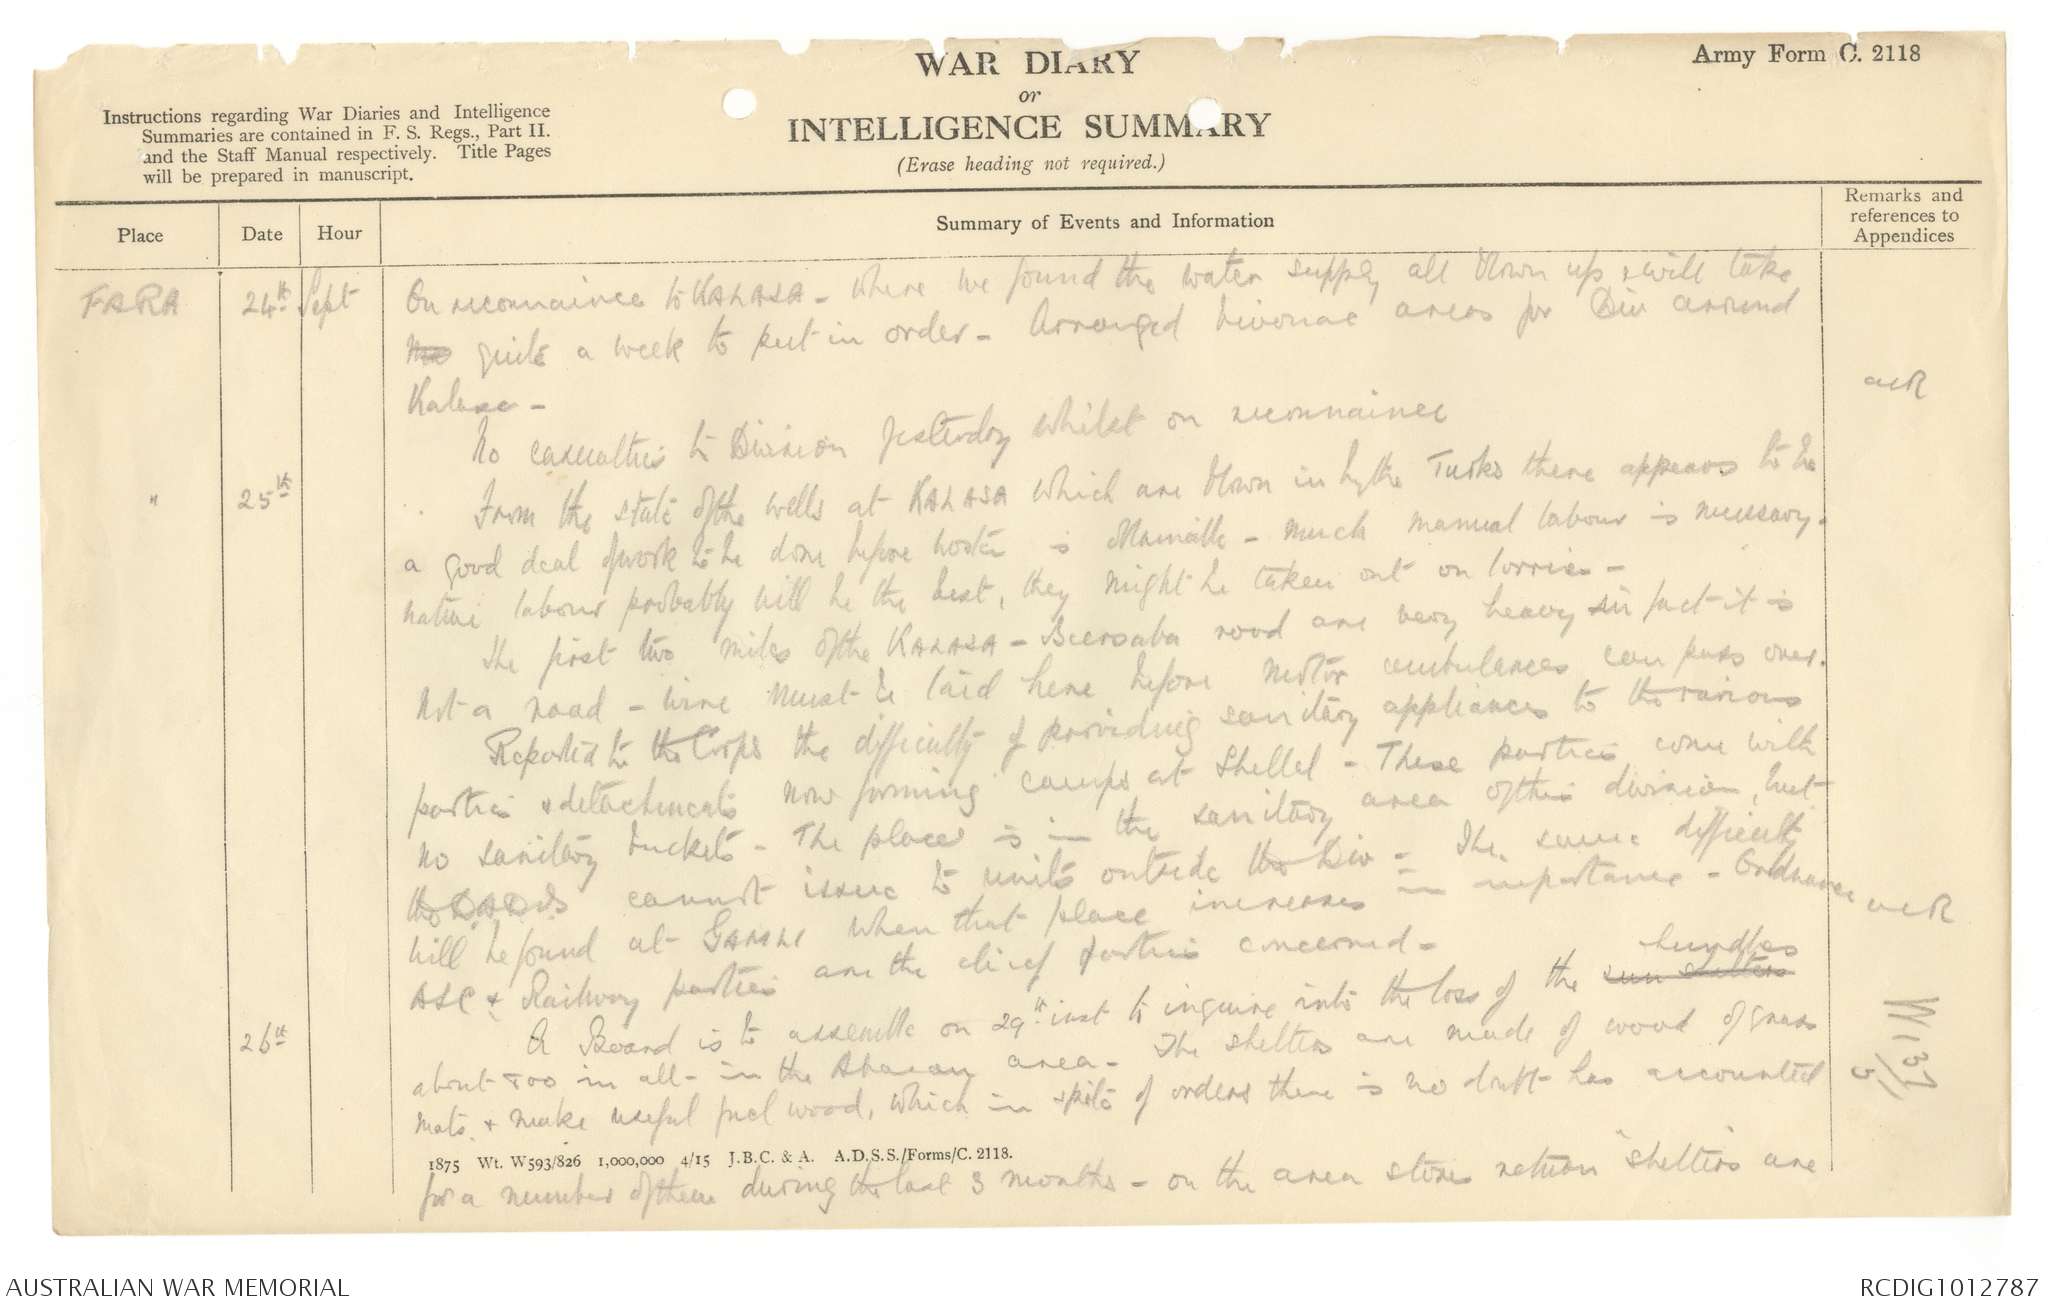 WAR DIARY
or
INTELLIGENCE SUMMARY
(Erase heading not required.)
Army Form C. 2118
Instructions regarding War Diaries and Intelligence
Summaries are contained in F. S. Regs., Part II.
and the Staff Manual respectively. Title Pages
will be prepared in manuscript.
Place
Date
Hour
Summary of Events and Information
Remarks and
references to
Appendices
FARA 24th Sept On reconnaince to KALASA - where we found the water supply all blown up & will take
quite a week to put in order - Arranged bivouac areas for Div around
Kalasa -
acR
No casualties to Division yesterday whilst on reconnaince
" 25th From the state of the wells at KALASA which are blown in by the Turks there appears to be
a good deal of work to be done before water is obtainable - much manual labour is necessary.
native labour probably will be the best, they might be taken out on lorries -
The first two miles of the KALASA - Beersaba road are very heavy in fact it is
not a road - wire must be laid here before motor ambulances can pass over.
Reported to the Corps the difficulty of providing sanitary appliances to the various
parties & detachments now forming camps at Shellel - These parties come with
no sanitary buckets - The place is in the sanitary area of this division, but
the DADOS cannot issue to units outside the Div - The same difficulty
will be found at GAMLI when that place increases in importance - Ordnance
acR
ASC & Railway parties are the chief parties concerned -
26th A Board is to assemble on 29th inst to inquire into the loss of the sun shelters bundles
about 500 in all - in the Abasan area - The shelters are made of wood of grass
mats & make useful fuel wood, which in spite of orders there is no doubt has accounted
1875 Wt. W593/826 1,000,000 4/15 J.B.C. & A. A.D.S.S./Forms/C. 2118.
for a number of them during the last 3 months - on the area stores return "shelters are
AUSTRALIAN WAR MEMORIAL
RCDIG1012787